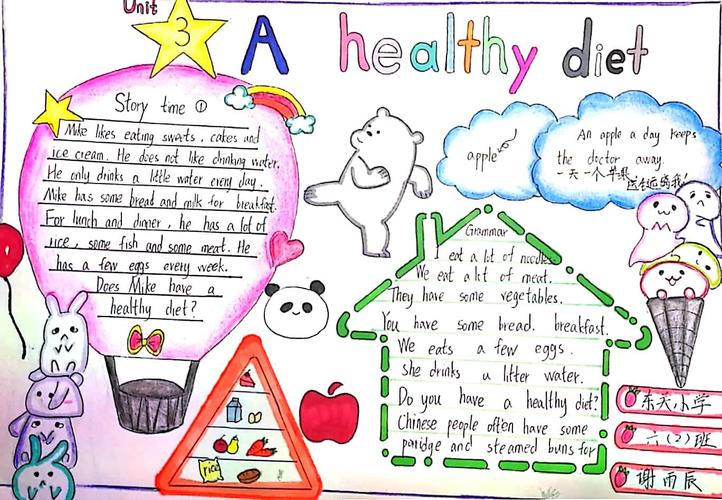 Unit
3
A healthy diet
Story time ①
Mike likes eating sweets, cakes and
ice cream. He does not like drinking water.
He only drinks a little water every day.
Mike has some bread and milk for breakfast.
For lunch and dinner, he has a lot of
rice, some fish and some meat. He
has a few eggs every week.
Does Mike have a
healthy diet?
apple
An apple a day keeps
the doctor away.
一天一个苹果
Grammar
I eat a lot of noodles
We eat a lot of meat.
They have some vegetables.
You have some bread. breakfast.
We eats a few eggs.
She drinks a litter water.
Do you have a healthy diet?
Chinese people often have some
poridge and steamed buns for
rice
东关小学
六(2)班
谢雨辰